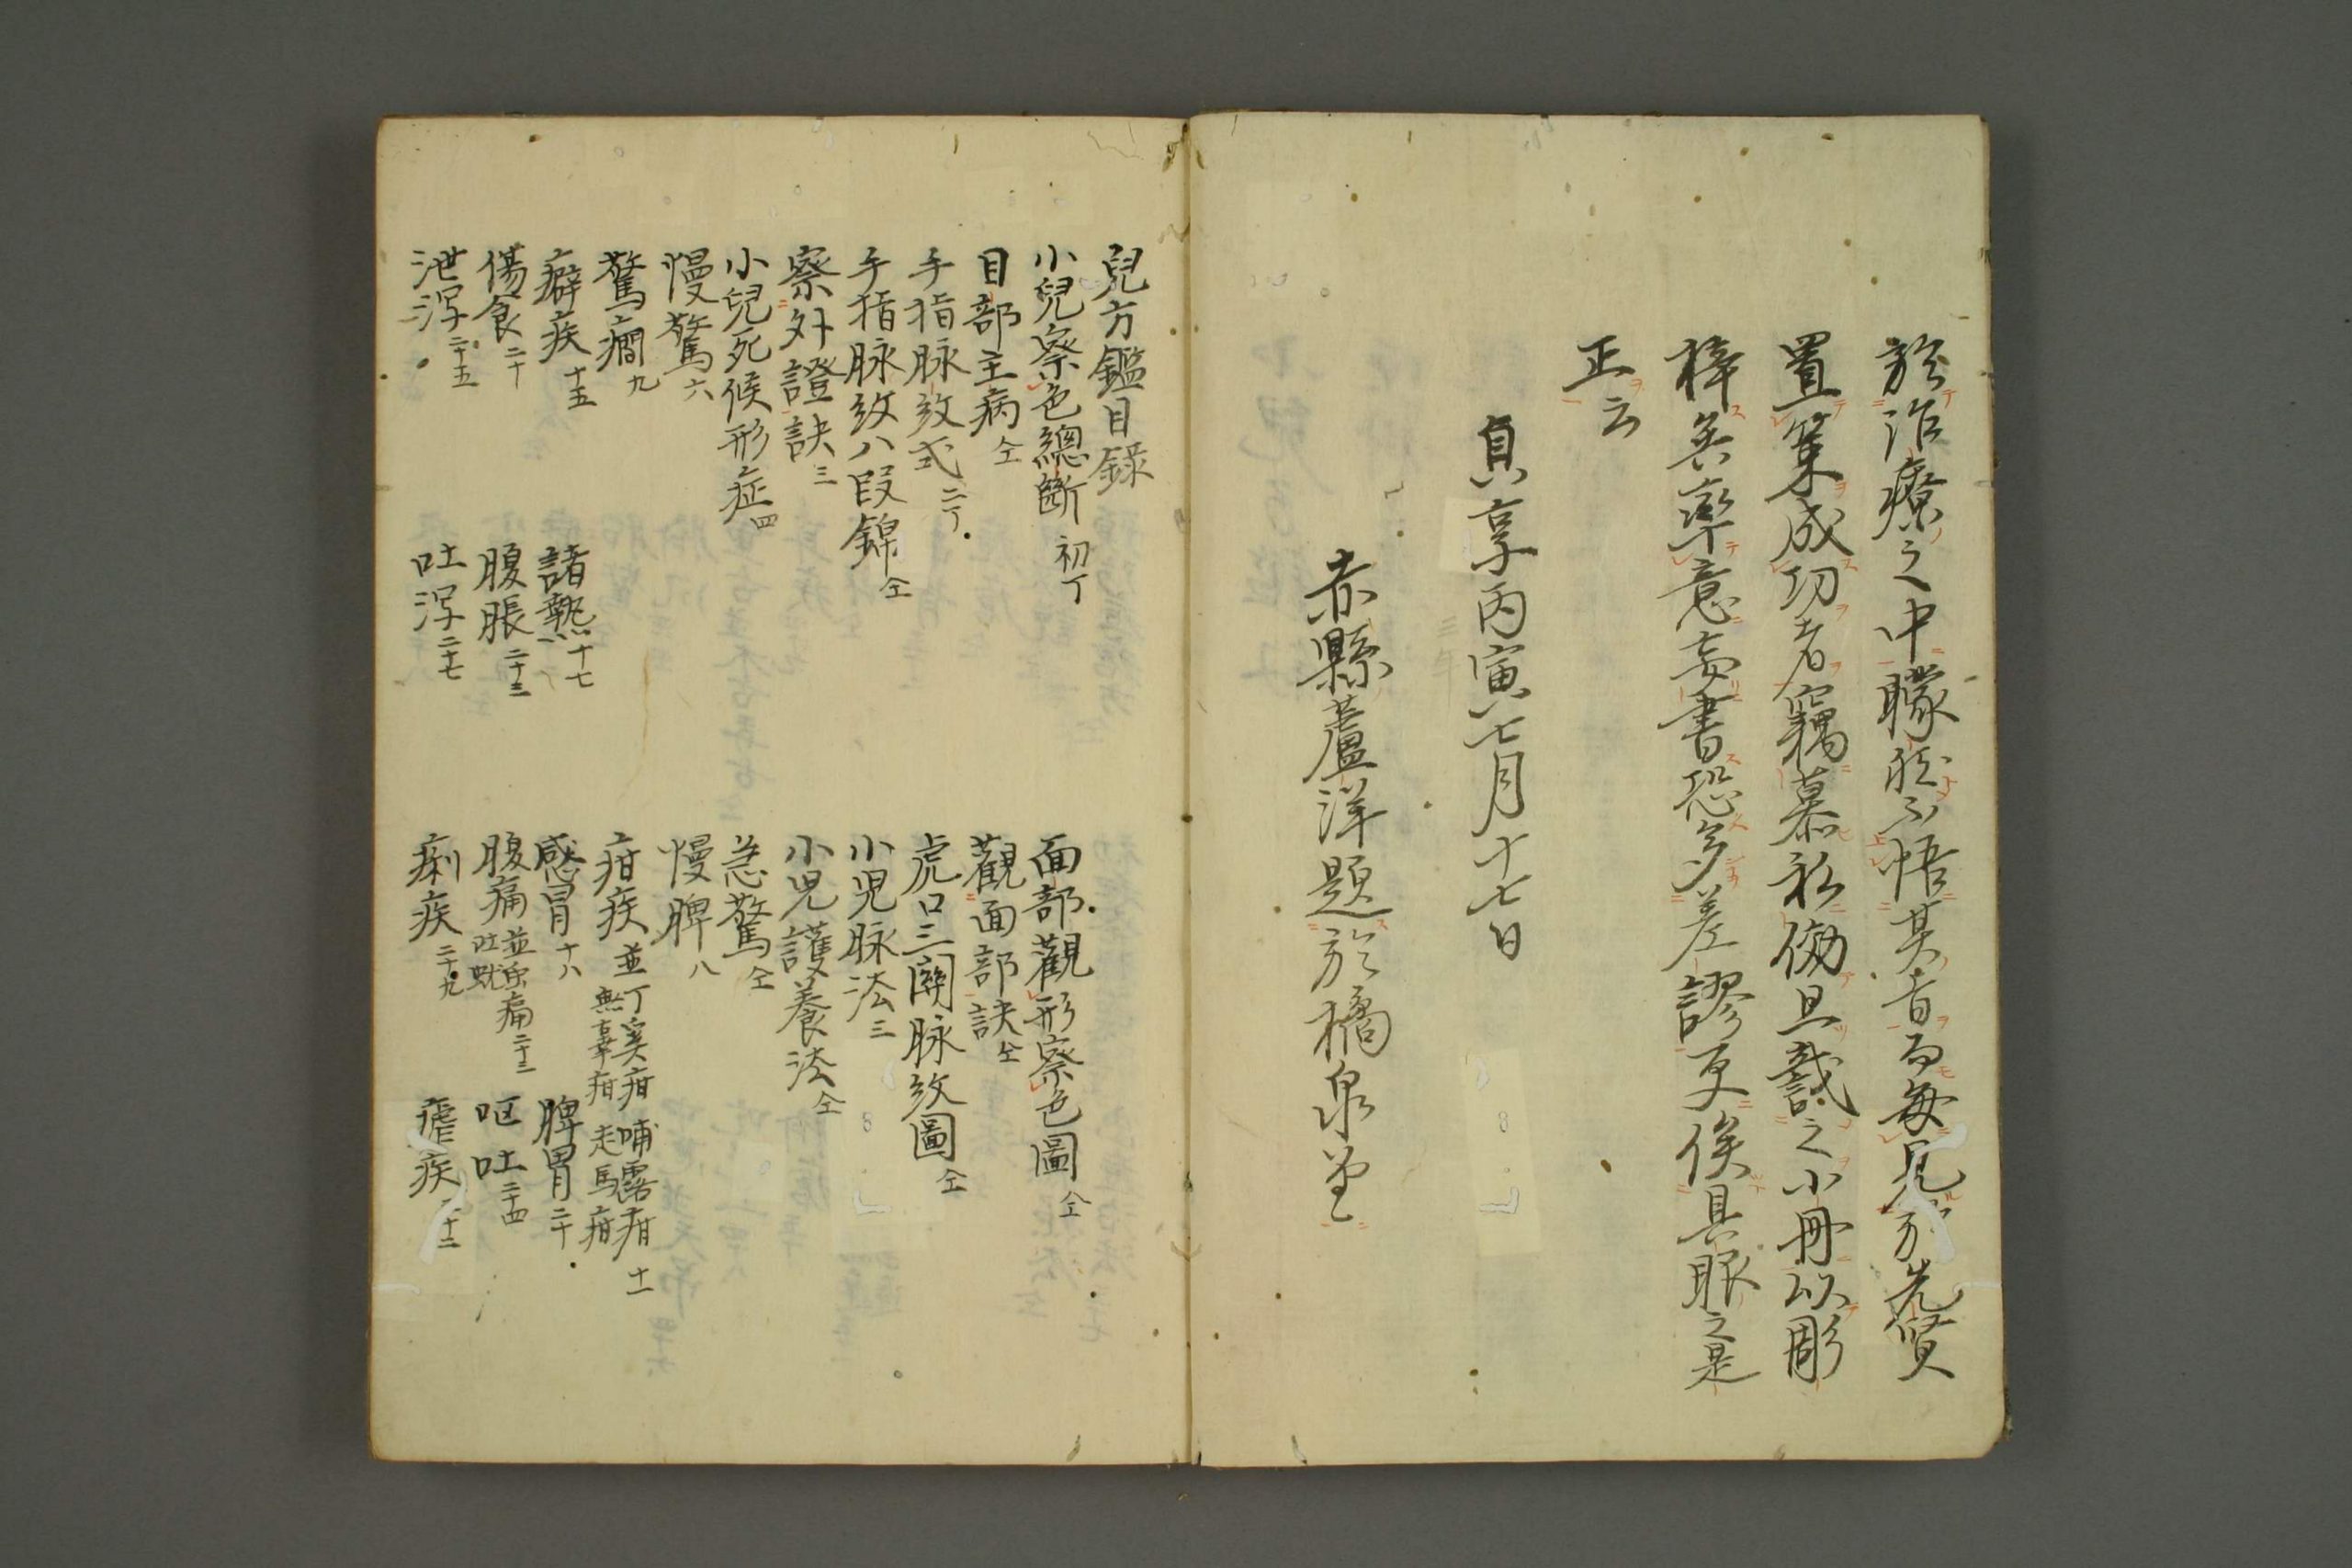 於治療之中朦朧不悟其旨而毎見於先賢
置策成功者竊慕私傚且戠之小冊以彫
梓矣率意妄書恐多差謬更俟具眼之是
正云
貞享丙寅七月十七日
赤縣蘆洋題於橘泉堂
兒方鑑目録
小兒察色總斷 初丁 面部觀形察色圖 仝
目部主病 仝 觀面部訣 仝
手指脉紋式 二丁 虎口三關脉紋圖 仝
手指脉紋八段錦 仝 小児脉法 三
察外證訣 三 小児護養法 仝
小兒死候形症 四 急驚 仝
慢驚 六 慢脾 八
驚癇 九 疳疾 並丁奚疳 哺露疳 無辜疳 走馬疳 十一
癖疾 十五 諸熱 十七 感冒 十八 脾胃 二十
傷食 二十 腹脹 二十三 腹痛 並虫痛 吐蚘 二十三 呕吐 二十四
泄泻 二十五 吐泻 二十七 痢疾 二十九 瘧疾